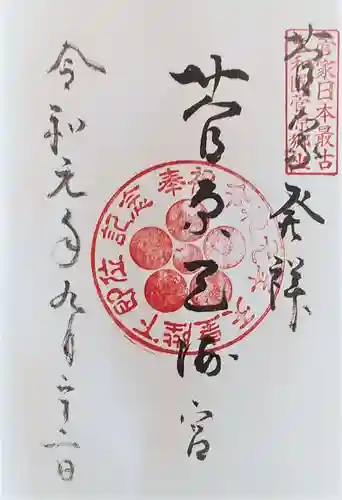 菅家発祥
菅原天満宮
令和元年九月二十二日
日本最古
奉祝
天皇陛下御即位記念